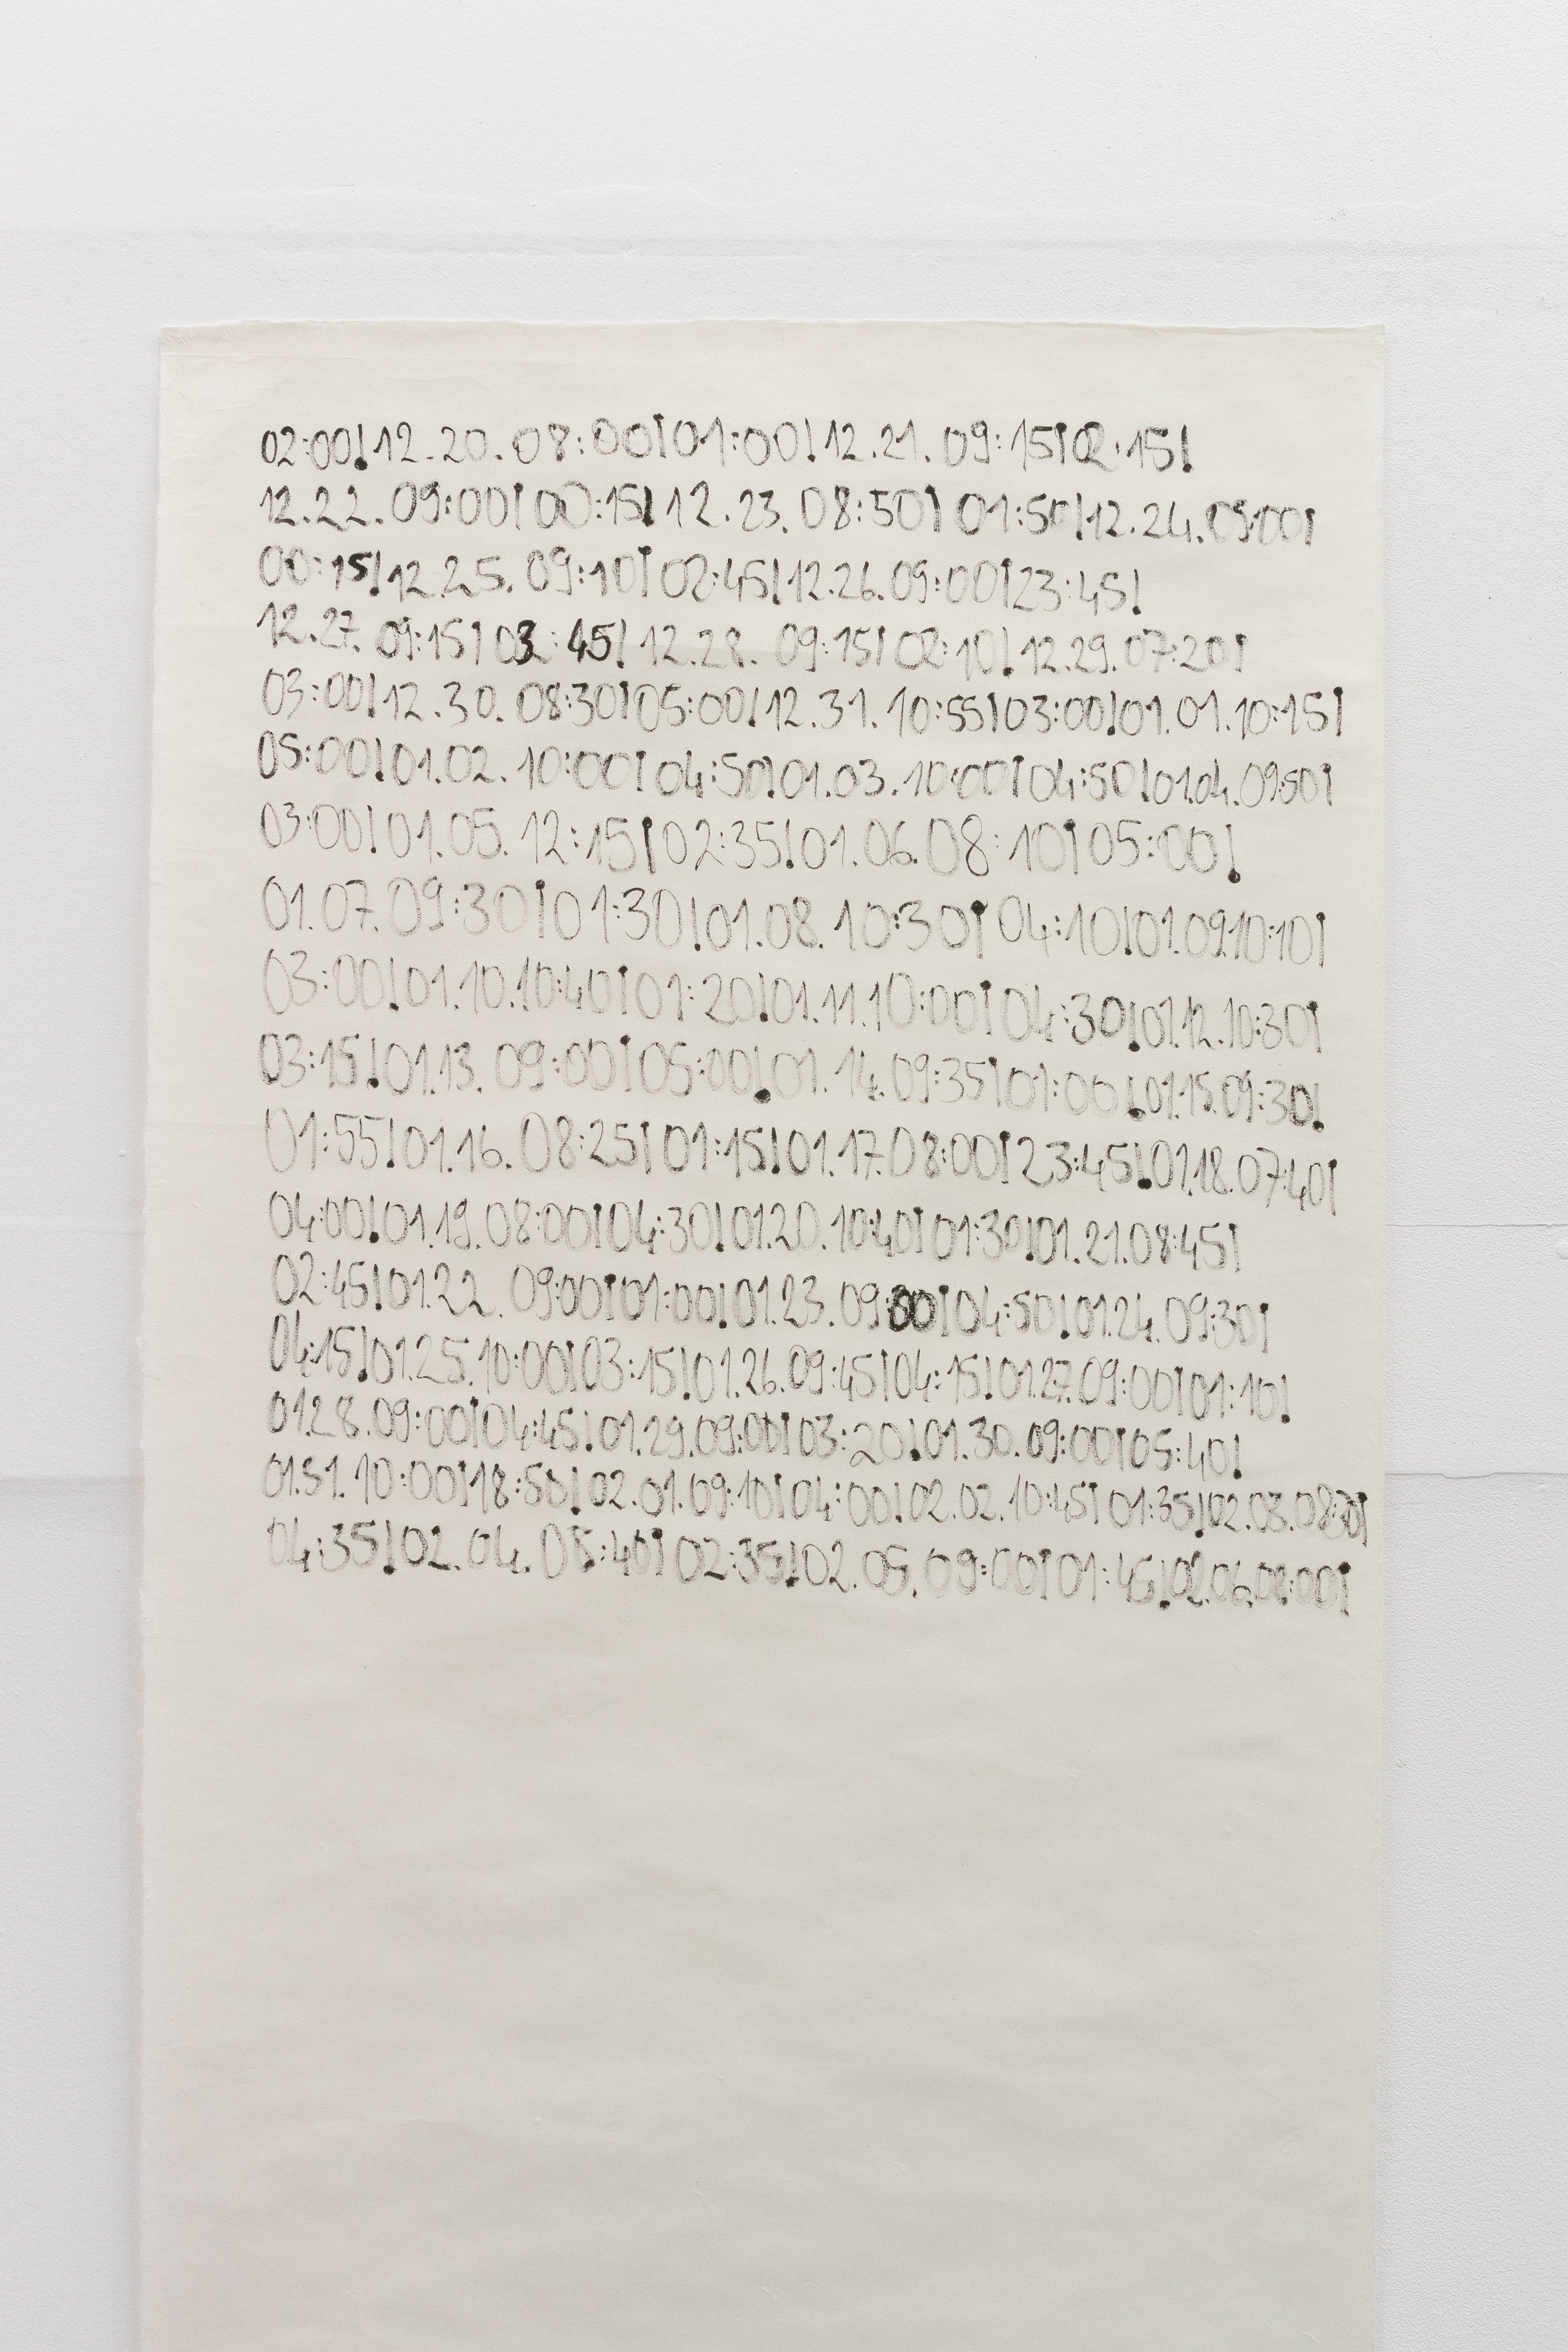 02:00!12.20.08:00¡01:00!12.21.09:15¡02:15!
12.22.09:00¡00:15!12.23.08:50¡01:50!12.24.09:00¡
00:15!12.25.09:10¡02:45!12.26.09:00¡23:45!
12.27.09:15¡03:45!12.28.09:15¡02:10!12.29.07:20¡
03:00!12.30.08:30¡05:00!12.31.10:55¡03:00!01.01.10:15¡
05:00!01.02.10:00¡04:50!01.03.10:00¡04:50!01.04.09:50¡
03:00!01.05.12:15¡02:35!01.06.08:10¡05:00!
01.07.09:30¡01:30!01.08.10:30¡04:10!01.09.10:10¡
03:00!01.10.10:40¡01:20!01.11.10:00¡04:30!01.12.10:30¡
03:15!01.13.09:00¡05:00!01.14.09:35¡01:00!01.15.09:30!
01:55!01.16.08:25¡01:15!01.17.08:00¡23:45!01.18.07:40¡
04:00!01.19.08:00¡04:30!01.20.10:40¡01:30!01.21.08:45¡
02:45!01.22.09:00¡01:00!01.23.09:00¡04:50!01.24.09:30¡
04:15!01.25.10:00¡03:15!01.26.09:45¡04:15!01.27.09:00¡01:10!
01.28.09:00¡04:45!01.29.09:00¡03:20!01.30.09:00¡05:40!
01.31.10:00¡18:50!02.01.09:10¡04:00!02.02.10:45¡01:35!02.03.
04:35!02.04.08:40¡02:35!02.05.09:00¡01:45!02.06.08:00¡